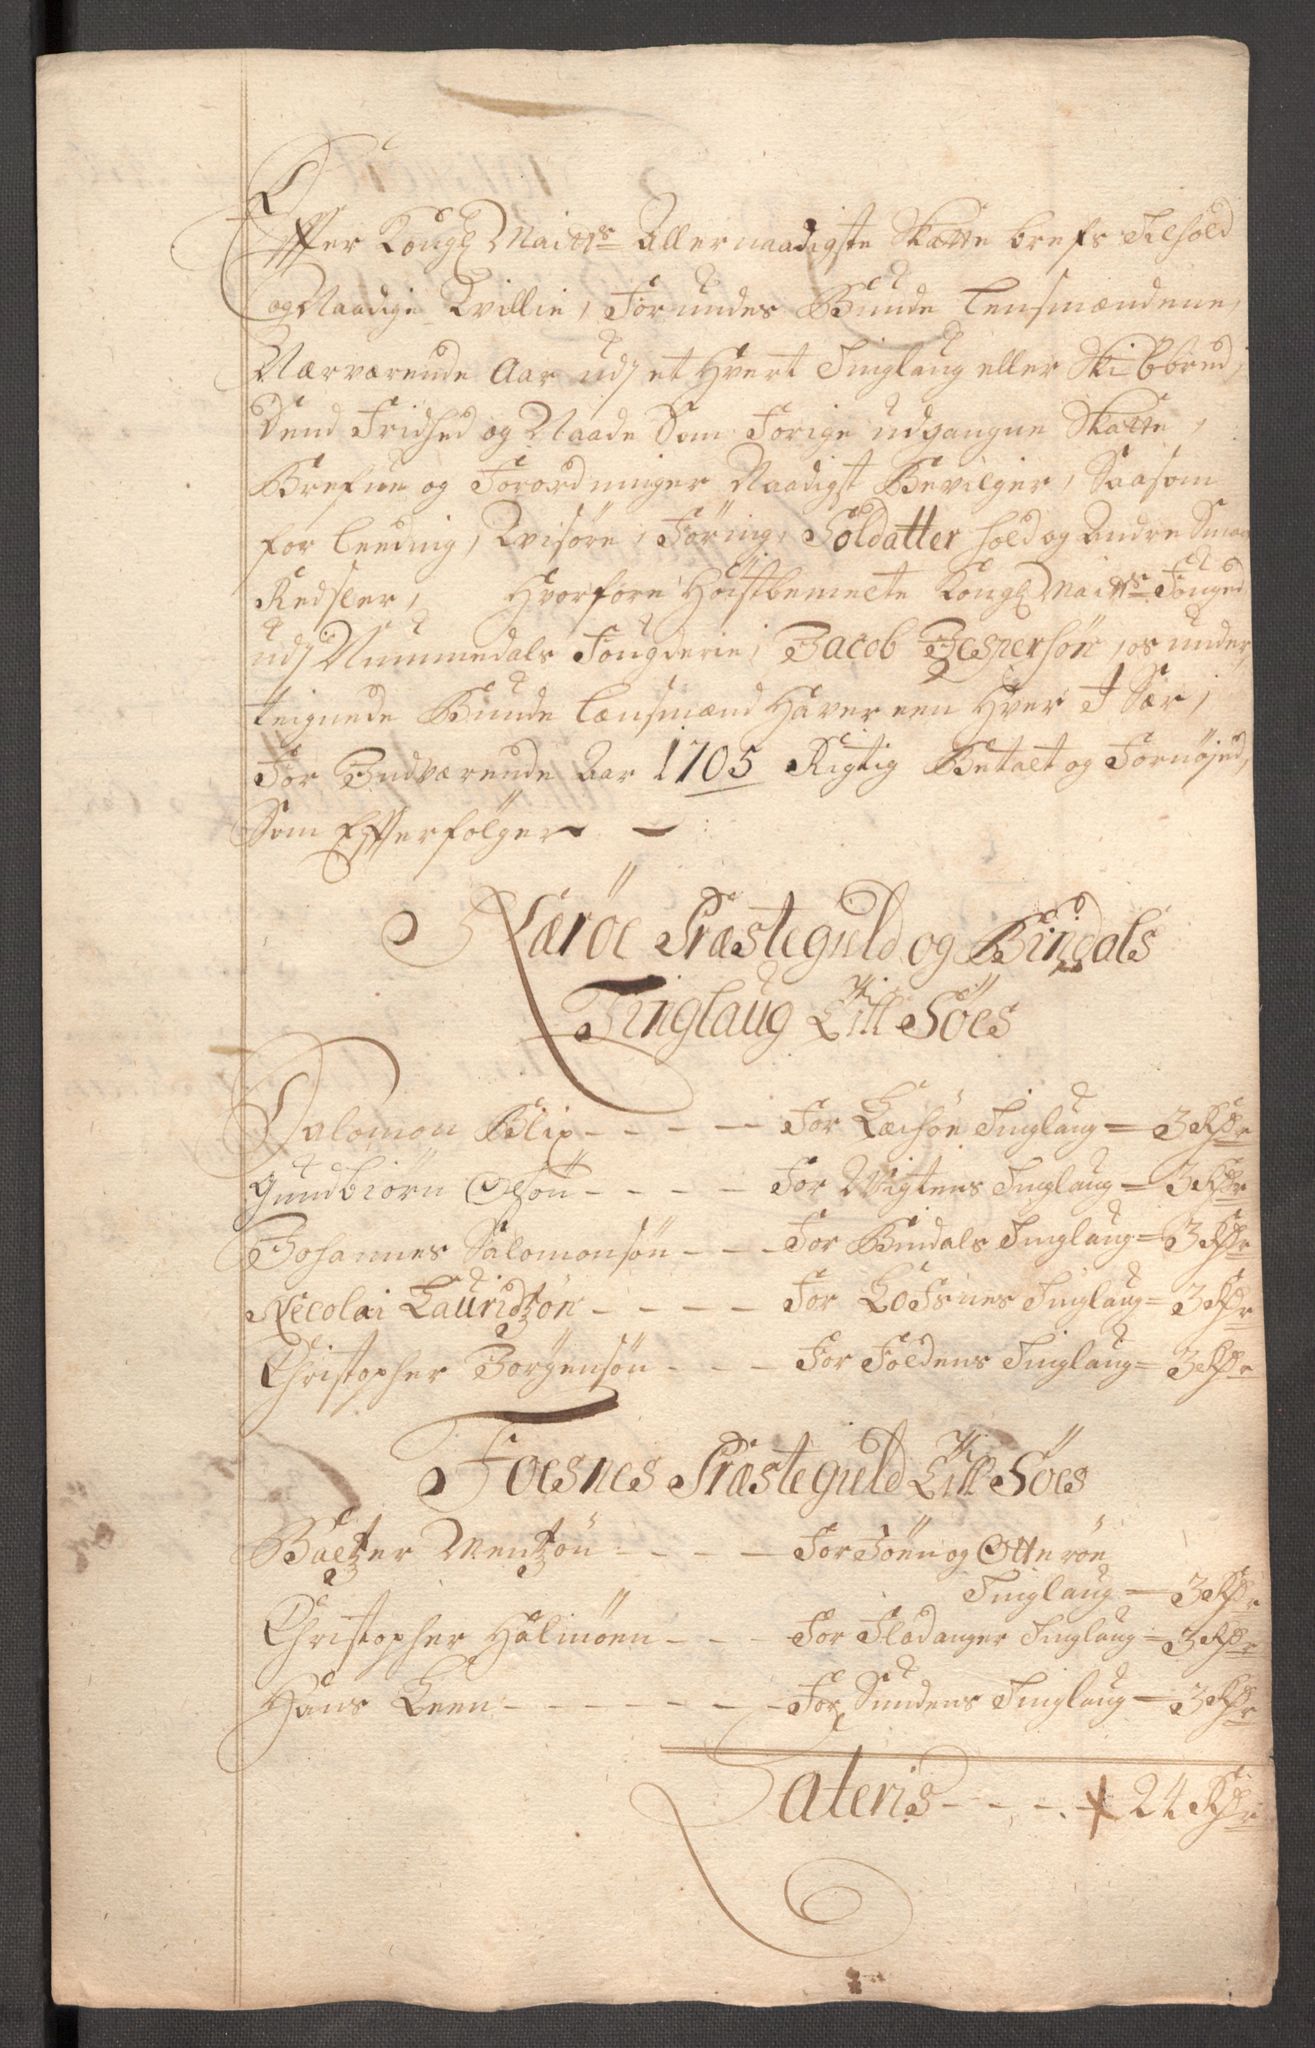 Effter Kongl Maitts Allernaadigste Skatte brefs Jnhold
og Naadige Willie, Forundes Bunde Lensmændene,
Nærværende Aar udj et Hvert Tinglaug eller Skibbred,
Dend Fridhed og Naade Som Forige udgangne Skatte,
Brefue og Forordninger Naadigst Bevilger, Saasom
for Leeding, Wisöre, Föring, Soldatter hold og Andre Smaa
Redsler, Hvorfore Höistbemelte Kongl Maitts Fouged
udj Nummedals Fougderie, Jacob Jespersön, os under,
teignede Bunde Lænsmænd Haver een Hver J Sær,
For Jndværende Aar 1705 Rigtig Betalt og Fornöjed,
Som Effterfölger
Næröe Præsteguld og Bindals
Tinglaug Till Söes
Salomon Blix - - - - For Lechön Tinglaug = 3 Rdr
Gundbiörn Olsön - - - - For Wigtens Tinglaug = 3 Rdr
Johannes Salomonsön - - - For Bindals Tinglaug = 3 Rdr
Nicolai Lauridtzön - - - - For Kofsnes Tinglaug = 3 Rdr
Christopher Jörgensön - - - For Foldens Tinglaug = 3 Rdr
Foesnes Præsteguld Till Söes
Baltzer Mentzön - - - - For Jöen og Otterön
Tinglaug = 3 Rdr
Christopher Halmöen - - - For Fladanger Tinglaug = 3 Rdr
Hans Leen - - - - - - For Sundens Tinglaug = 3 Rdr
Lateris - - - - 24 Rdr